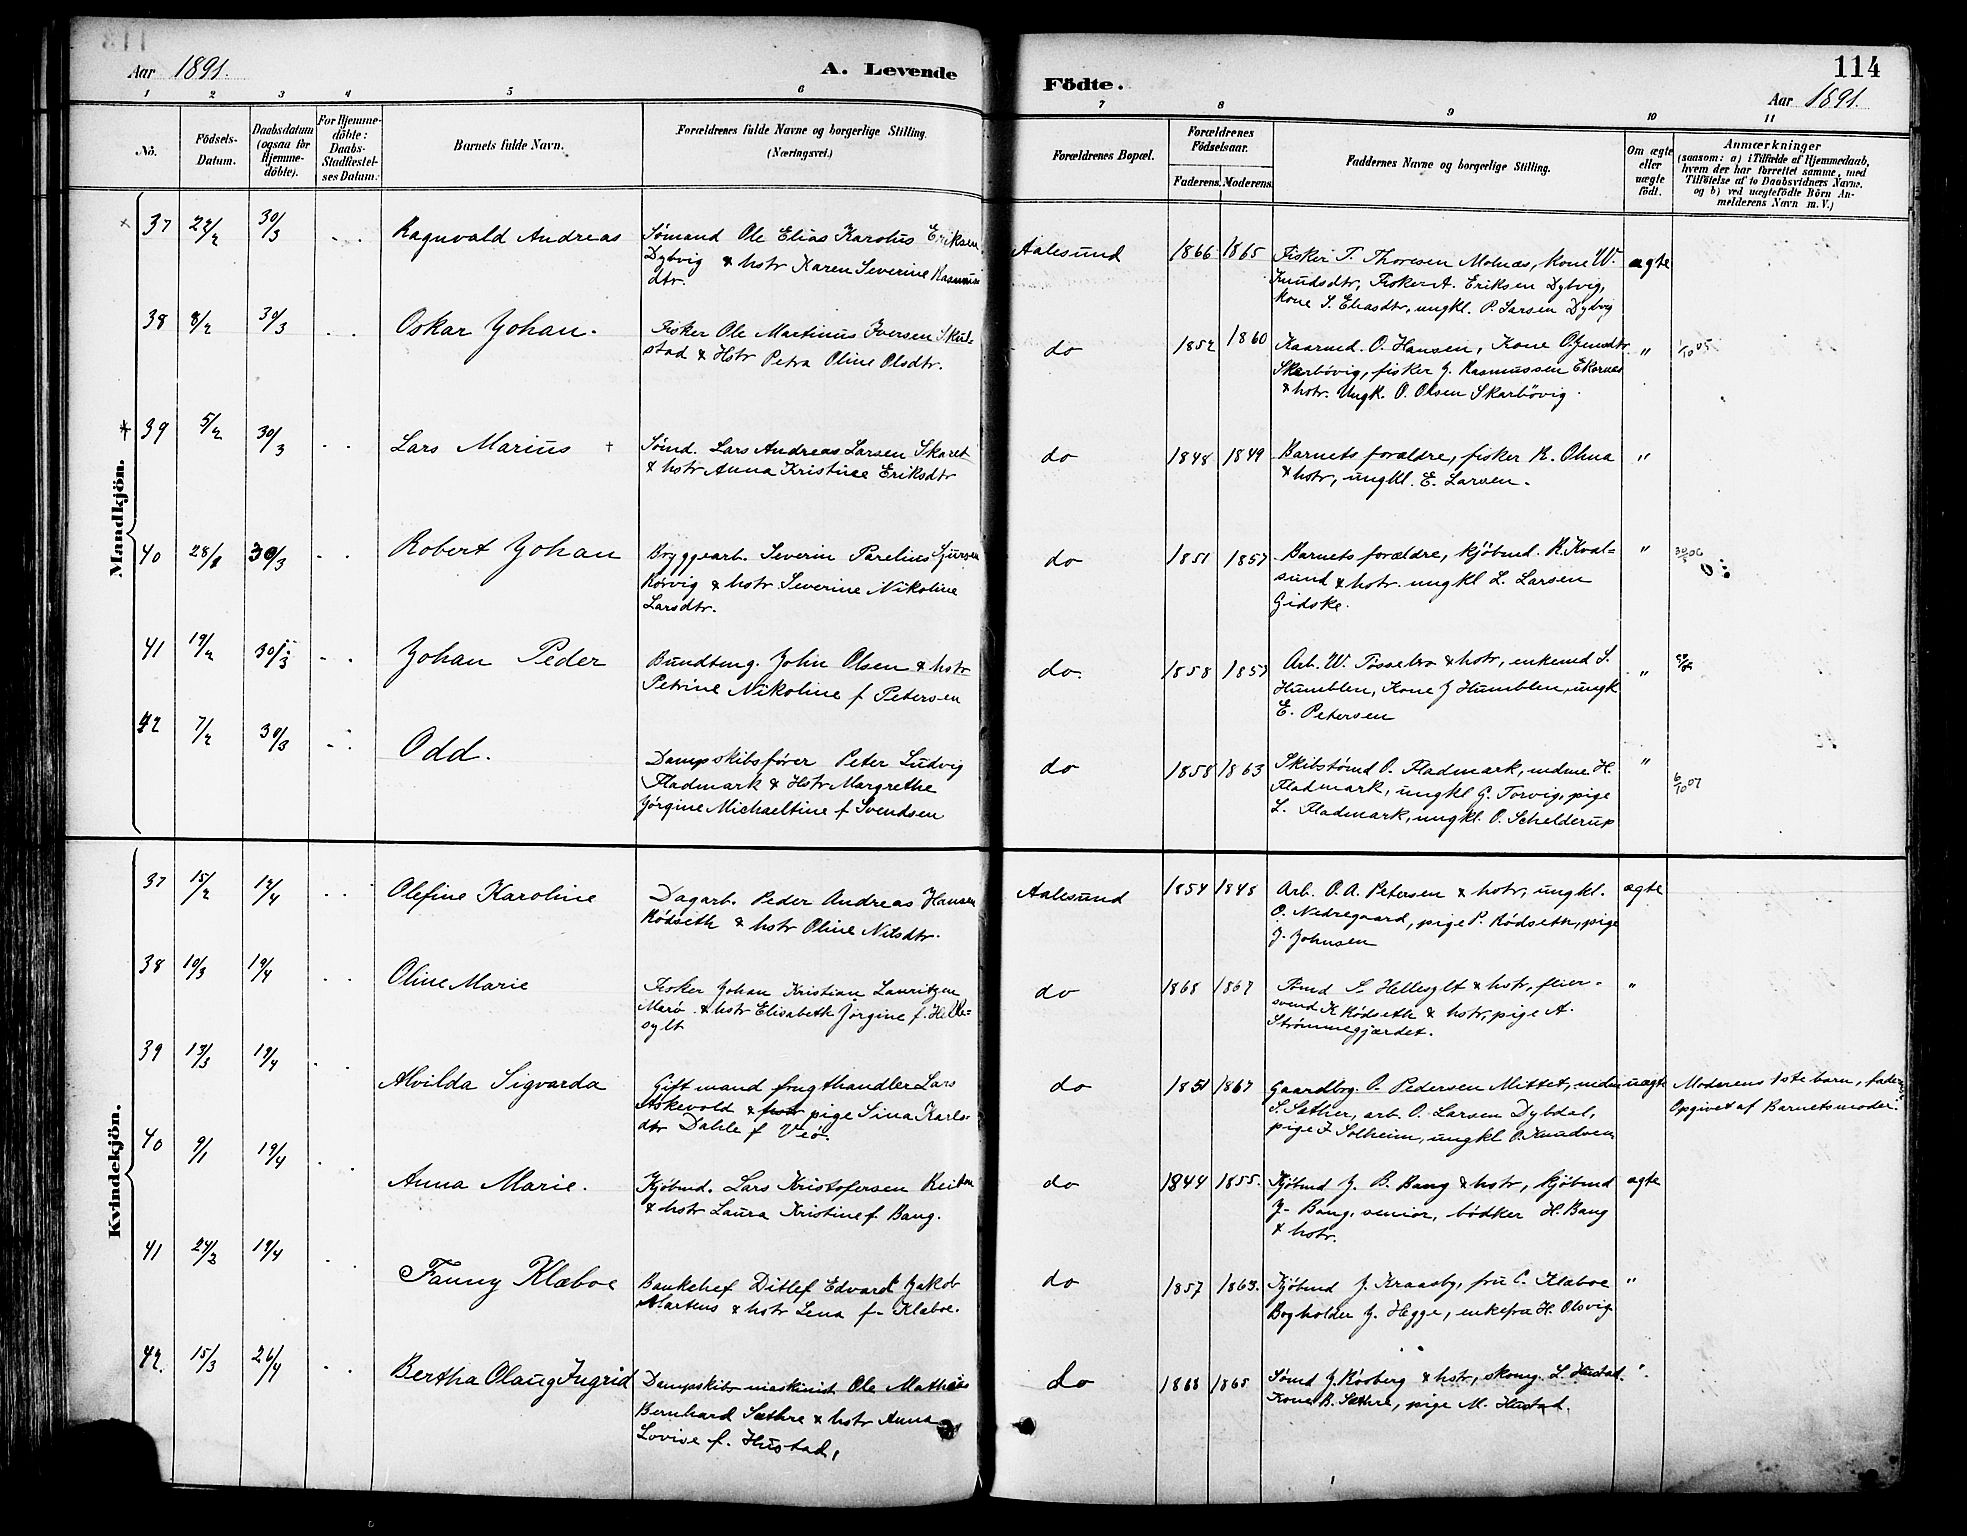 Aar 1891.
A. Levende
Födte.
114
Aar 1891.
1 2 3 4 5 6 7 8 9 10 11
No.
Födsels-Datum.
Daabsdatum (ogsaa for Hjemmedöbte).
For Hjemmedöbte: Daabs-Stadfæstelses Datum.
Barnets fulde Navn.
Forældrenes fulde Navne og borgerlige Stilling.
(Næringsvei.)
Forældrenes Bopæl.
Forældrenes Födselsaar.
Faderens. Moderens.
Faddernes Navne og borgerlige Stilling.
Om ægte eller uægte födt.
Anmærkninger
(saasom: a) i Tilfælde af Hjemmedaab,
hvem der har forrettet samme, med
Tilföielse af to Daabsvidners Navne,
og b) ved uægtefödte Börn Anmelderens Navn m. V.)
Mandkjön.
37 22/2 30/3 Ragnvald Andreas
Sømand Ole Elias Karolus Eriksen
Dybvig & hstr Karen Severine Rasmus
dtr.
Aalesund 1866 1865
Fisker T. Thoresen Molnæs, kone W.
Knudsdtr, Fisker A. Eriksen Dybvig,
kone S. Eliasdtr, ungkl. P. Larsen Dybvig
ægte
38 8/2 30/3 Oskar Johan.
Fisker Ole Martinus Iversen Skul-
stad & Hstr Petra Oline Olsdtr.
do 1852 1860
Kaarmd. O. Hansen, Kone O. Jensdtr
Skarbövig, fisker J. Rasmussen Ekornæs
& hstr. Ungk. O. Olsen Skarbövig.
" 1/10 05
39 5/2 30/3 Lars Marius +
Sømd. Lars Andreas Larsen Skaret
& hstr Anna Kristine Eriksdtr
do 1848 1849
Barnets forældre, fisker K. Ohna
& hstr, ungkl. E. Larsen.
"
40 28/1 30/3 Robert Johan
Bryggearb. Severin Parelius Sjursen
Rörvig & hstr Severine Nikoline
Larsdtr.
do 1851 1857
Barnets forældre, kjöbmd. K. Kval-
sund & hstr. ungkl L. Larsen
Gidske.
"
41 19/2 30/3 Johan Peder
Bundtmg. John Olsen & hstr
Petrine Nikoline f Petersen
do. 1858 1857
Arb. W. Fossebro & hstr, enkemd S.
Humblen, Kone J Humblen, ungk
E. Petersen
"
42 7/2 30/3 Odd.
Dampskibsfører Peter Ludvig
Fladmark & Hstr Margrethe
Jörgine Michaeltine f Svendsen
do 1858 1863
Skibstömd O. Fladmark, madme H.
Fladmark, ungkl G. Torvig, pige
L. Fladmark, ungkl. O. Schelderup
" 6/10 07
Kvindekjön.
37 15/2 12/4 Olefine Karoline
Dagarb. Peder Andreas Hansen
Rödseth & hstr Oline Nilsdtr.
Aalesund 1854 1848
Arb. O. A. Petersen & hstr, ungkl.
O. Nedregaard, pige P. Rödseth, pige
J. Johnsen
ægte
38 10/3 19/4 Oline Marie
Fisker Johan Kristian Lauritzen
Marö & hstr Elisabeth Jörgine f. Helle-
sylt
do 1868 1867
Tömd S. Hellesylt & hstr, feier-
svend K Rödseth & hstr, pige A.
Strömmegjærdet.
"
39 13/3 19/4 Alvilda Sigvarda
Gift mand frugthandler Lars
Askevold & hstr pige Sina Karls-
dtr Dahle f Veö.
do 1851 1867
Gaardbrg. O. Pedersen Mittet, mdm
S. Sæther, arb. O. Larsen Dybdal,
pige J. Solheim, ungkl O. Knudsen
uægte
Moderens 1ste barn, fader
Opgivet af Barnets moder.
40 9/1 19/4 Anna Marie.
Kjöbmd. Lars Kristofersen Reiten
& hstr Laura Kristine f. Bang.
do 1844 1855.
Kjöbmd J. B. Bang & hstr, kjöbmd
J. Bang, senior, bödker H. Bang
& hstr.
ægte
41 24/2 19/4 Fanny Klæboe
Bankchef Ditlef Edvard Jakob
Martens & hstr Lena f. Klæboe.
do 1857 1863.
Kjöbmd J. Kraasby, fru C. Klæboe
Bogholder J. Hegge, enkefru H. Olsvig
"
42. 15/3 26/4 Bertha Olaug Ingrid
Dampskibsmaskinist Ole Mathias
Bernhard Sæthre & hstr Anna
Lovise f. Hustad,
do 1868 1865
Sömd J. Rösberg & hstr, skomg. L. Hustad.
Kone B. Sæthre, pige M. Hustad.
"